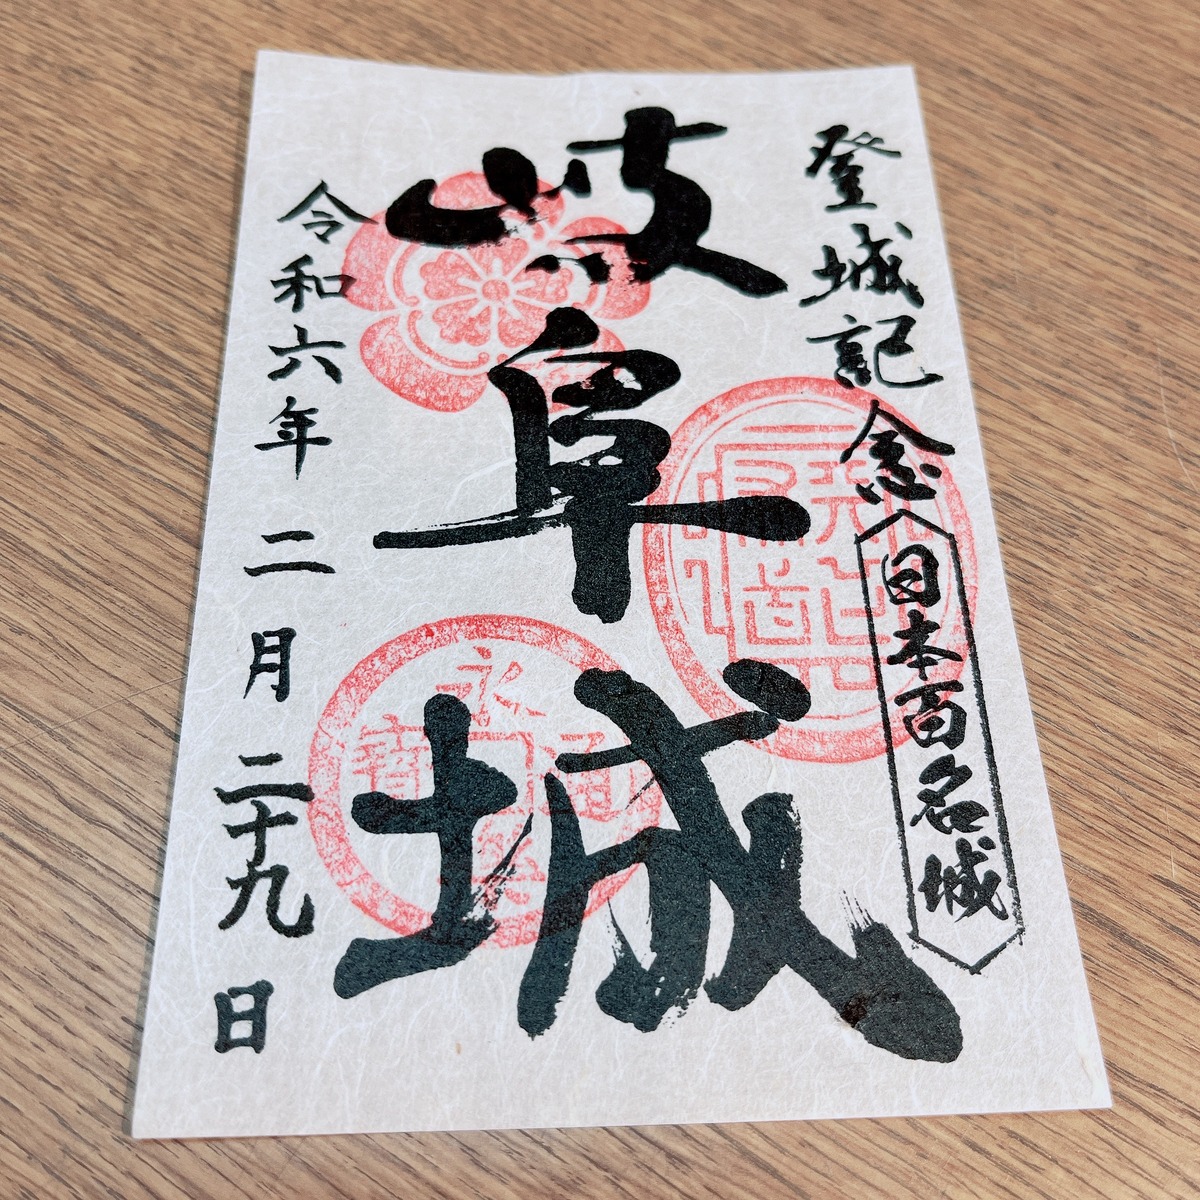 登城記念
日本百名城
岐阜城
令和六年二月二十九日
永
通
寶